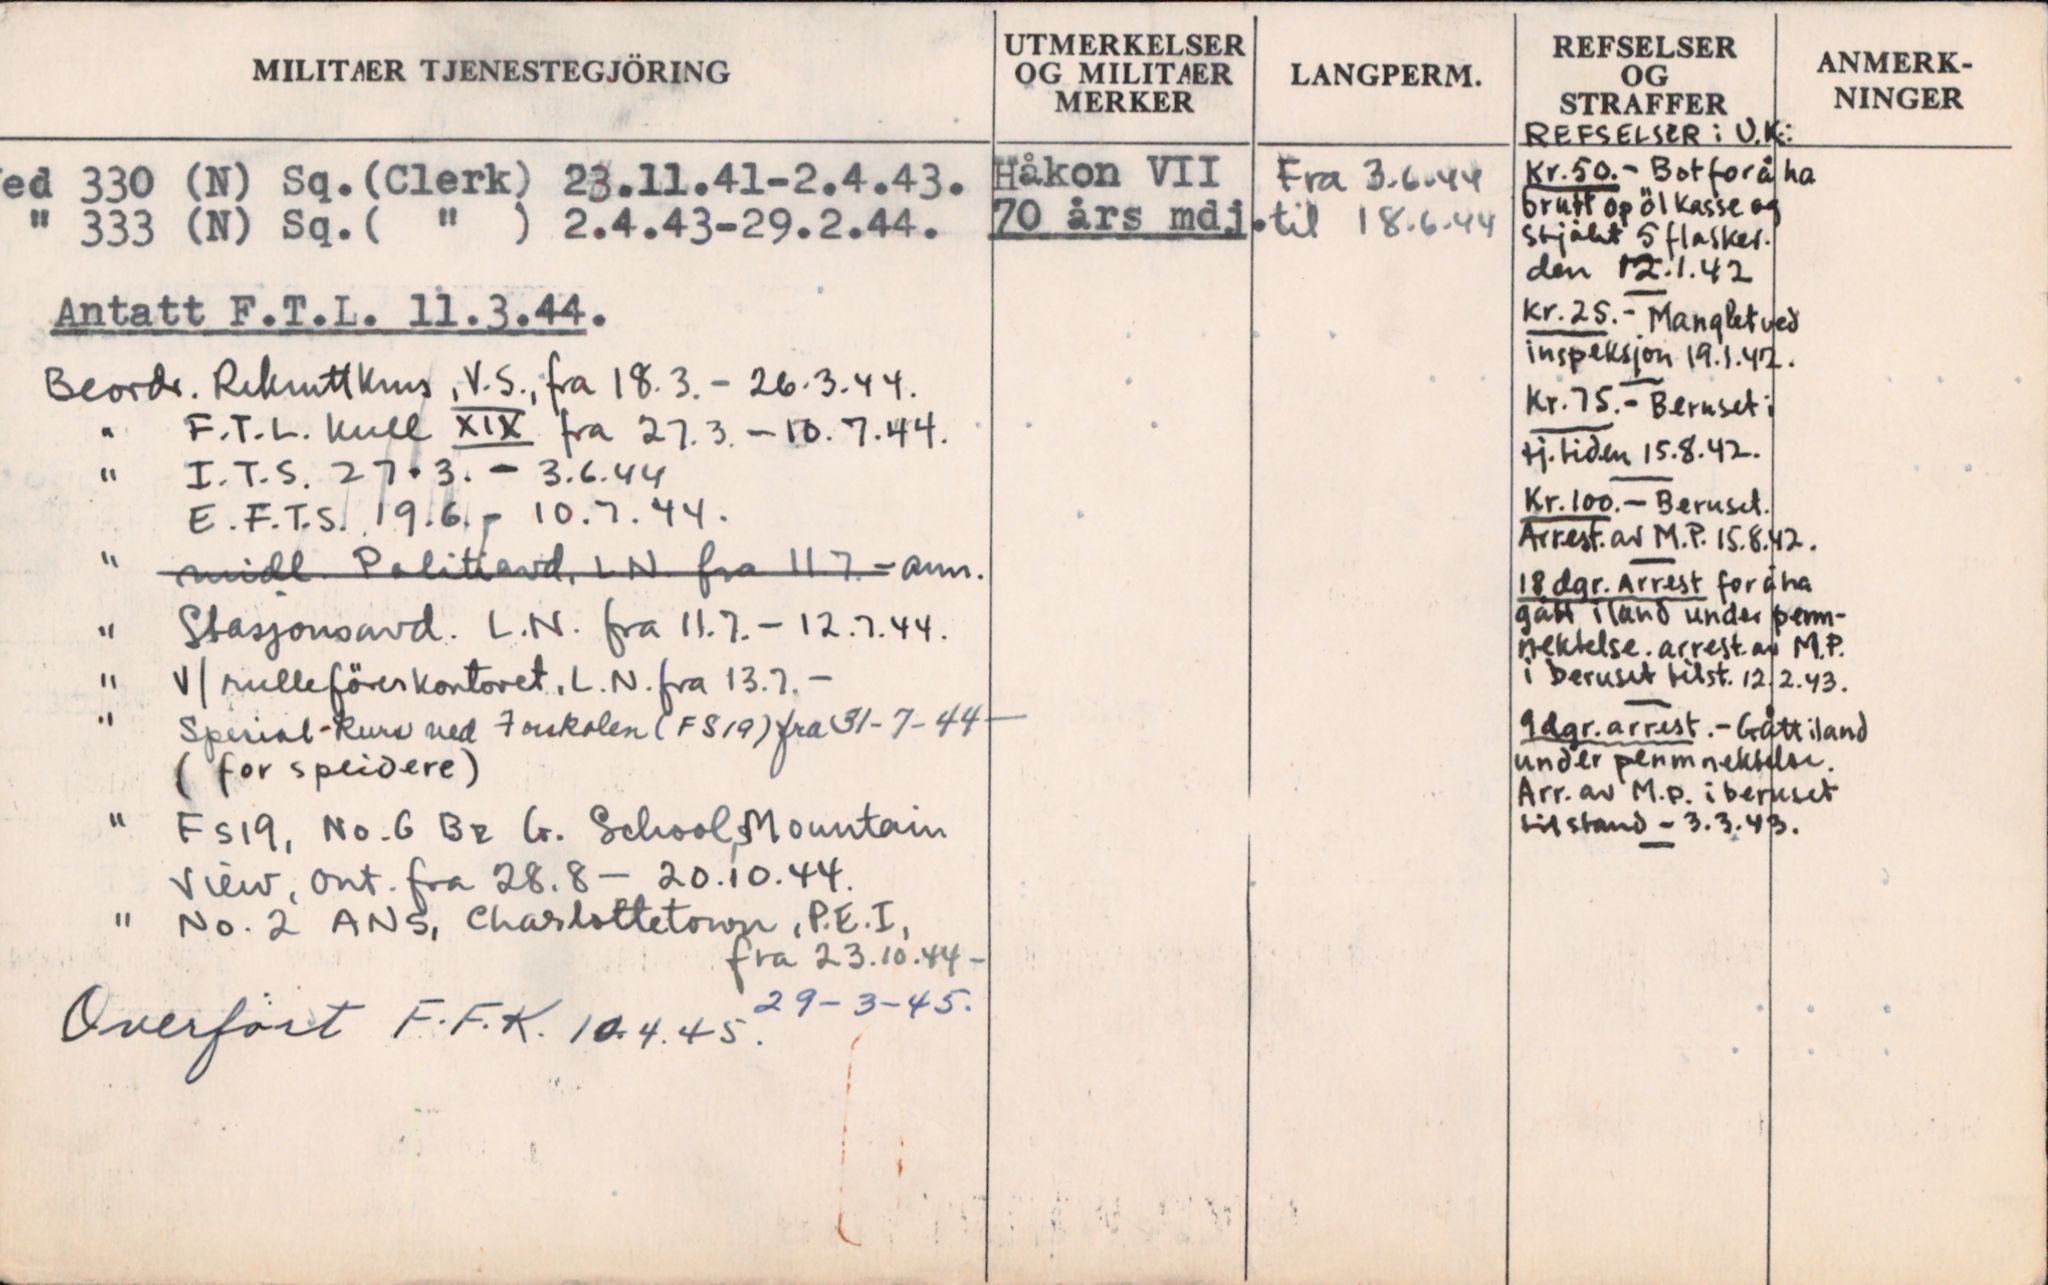 MILITÆR TJENESTEGJÖRING
ed 330 (N) Sq.(Clerk) 23.11.41-2.4.43.
" 333 (N) Sq.( " ) 2.4.43-29.2.44.
Antatt F.T.L. 11.3.44.
Beordr. Rekruttkurs, V.S., fra 18.3. - 26.3.44.
" F.T.L. kull XIX fra 27.3. - 10.7.44.
" I.T.S. 27.3. - 3.6.44
E.F.T.S. 19.6. - 10.7.44.
" midl. Politiavd. L.N. fra 11.7. - ann.
" Stasjonsavd. L.N. fra 11.7. - 12.7.44.
" v/ rulleförerkontoret, L.N. fra 13.7. -
" Spesial-kurs ved (FS19) fra 31-7-44 -
( for speidere)
" FS19, No. 6 B& G. School, Mountain
View, Ont. fra 28.8 - 20.10.44.
" No. 2 ANS, Charlottetown, P.E.I,
fra 23.10.44 -
29-3-45.
Overfört F.F.K. 10.4.45.
UTMERKELSER
OG MILITÆR
MERKER
Håkon VII
70 års mdj.
LANGPERM.
Fra 3.6.44
til 18.6.44
REFSELSER
OG
STRAFFER
REFSELSER i U.K.:
Kr. 50.- Bot for å ha
brutt op ölkasse og
stjålet 5 flasker.
den 12.1.42
Kr. 25.- Manglet ved
inspeksjon 19.1.42.
Kr. 75.- Beruset i
tj.tiden 15.8.42.
Kr. 100.- Beruset.
Arrest. av M.P. 15.8.42.
18 dgr. Arrest for å ha
gått iland under perm-
nektelse. arrest. av M.P.
i beruset tilst. 12.2.43.
9 dgr. arrest. - Gått iland
under permnektelse.
Arr. av M.p. i beruset
tilstand - 3.3.43.
ANMERK-
NINGER